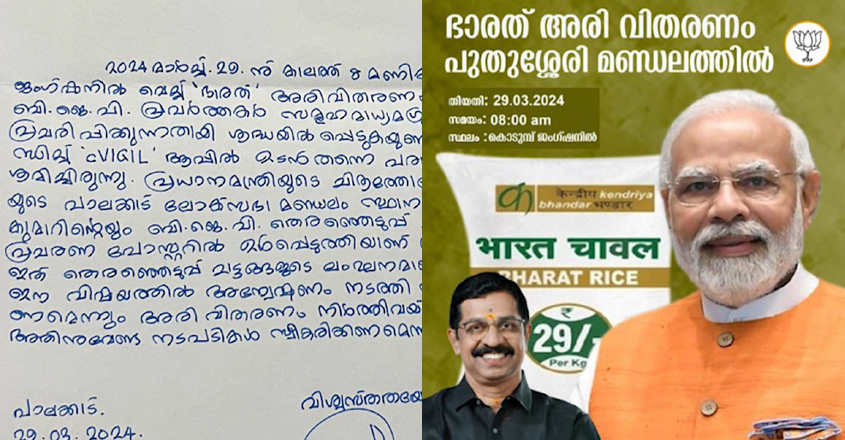 2024 മാർച്ച്. 29. ന് കാലത്ത് 8 മണിക്
ജംഗ്ഷനിൽ വെച്ച് 'ഭാരത്' അരിവിതരണം
ബി.ജെ.പി. പ്രവർത്തകർ സമൂഹമാധ്യമങ്ങ
പ്രചരിപ്പിക്കുന്നതായി ശ്രദ്ധയിൽ പെടുകയുണ
'cVIGIL' ആപ്പിൽ ഉടൻ തന്നെ പരാ
ശ്രമിച്ചിരുന്നു. പ്രധാനമന്ത്രിയുടെ ചിത്രത്തോ
യുടെ പാലക്കാട് ലോക്സഭാ മണ്ഡലം സ്ഥാന
കുമാറിന്റെയും ബി.ജെ.പി. തെരഞ്ഞെടുപ്പ്
പ്രചരണ പോസ്റ്ററിൽ ഉൾപ്പെടുത്തിയാണ്
ഇത് തെരഞ്ഞെടുപ്പ് ചട്ടങ്ങളുടെ ലംഘനമാ
ഈ വിഷയത്തിൽ അന്വേഷണം നടത്തി
ണമെന്നും അരി വിതരണം നിർത്തിവയ്
അതിനുവേണ്ട നടപടികൾ സ്വീകരിക്കണമെന
പാലക്കാട്.
29.03.2024.
വിശ്വസ്തതയോ
ഭാരത് അരി വിതരണം
പുതുശ്ശേരി മണ്ഡലത്തിൽ
തിയതി: 29.03.2024
സമയം: 08:00 am
സ്ഥലം :കൊടുമ്പ് ജംഗ്ഷനിൽ
केन्द्रीय kendriya
bhandar भण्डार
भारत चावल
BHARAT RICE
₹
29/-
Per Kg